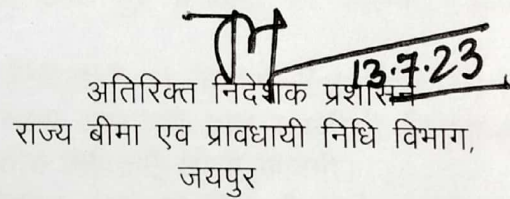 13.7.23
अतिरिक्त निदेशक प्रशासन
राज्य बीमा एव प्रावधायी निधि विभाग,
जयपुर